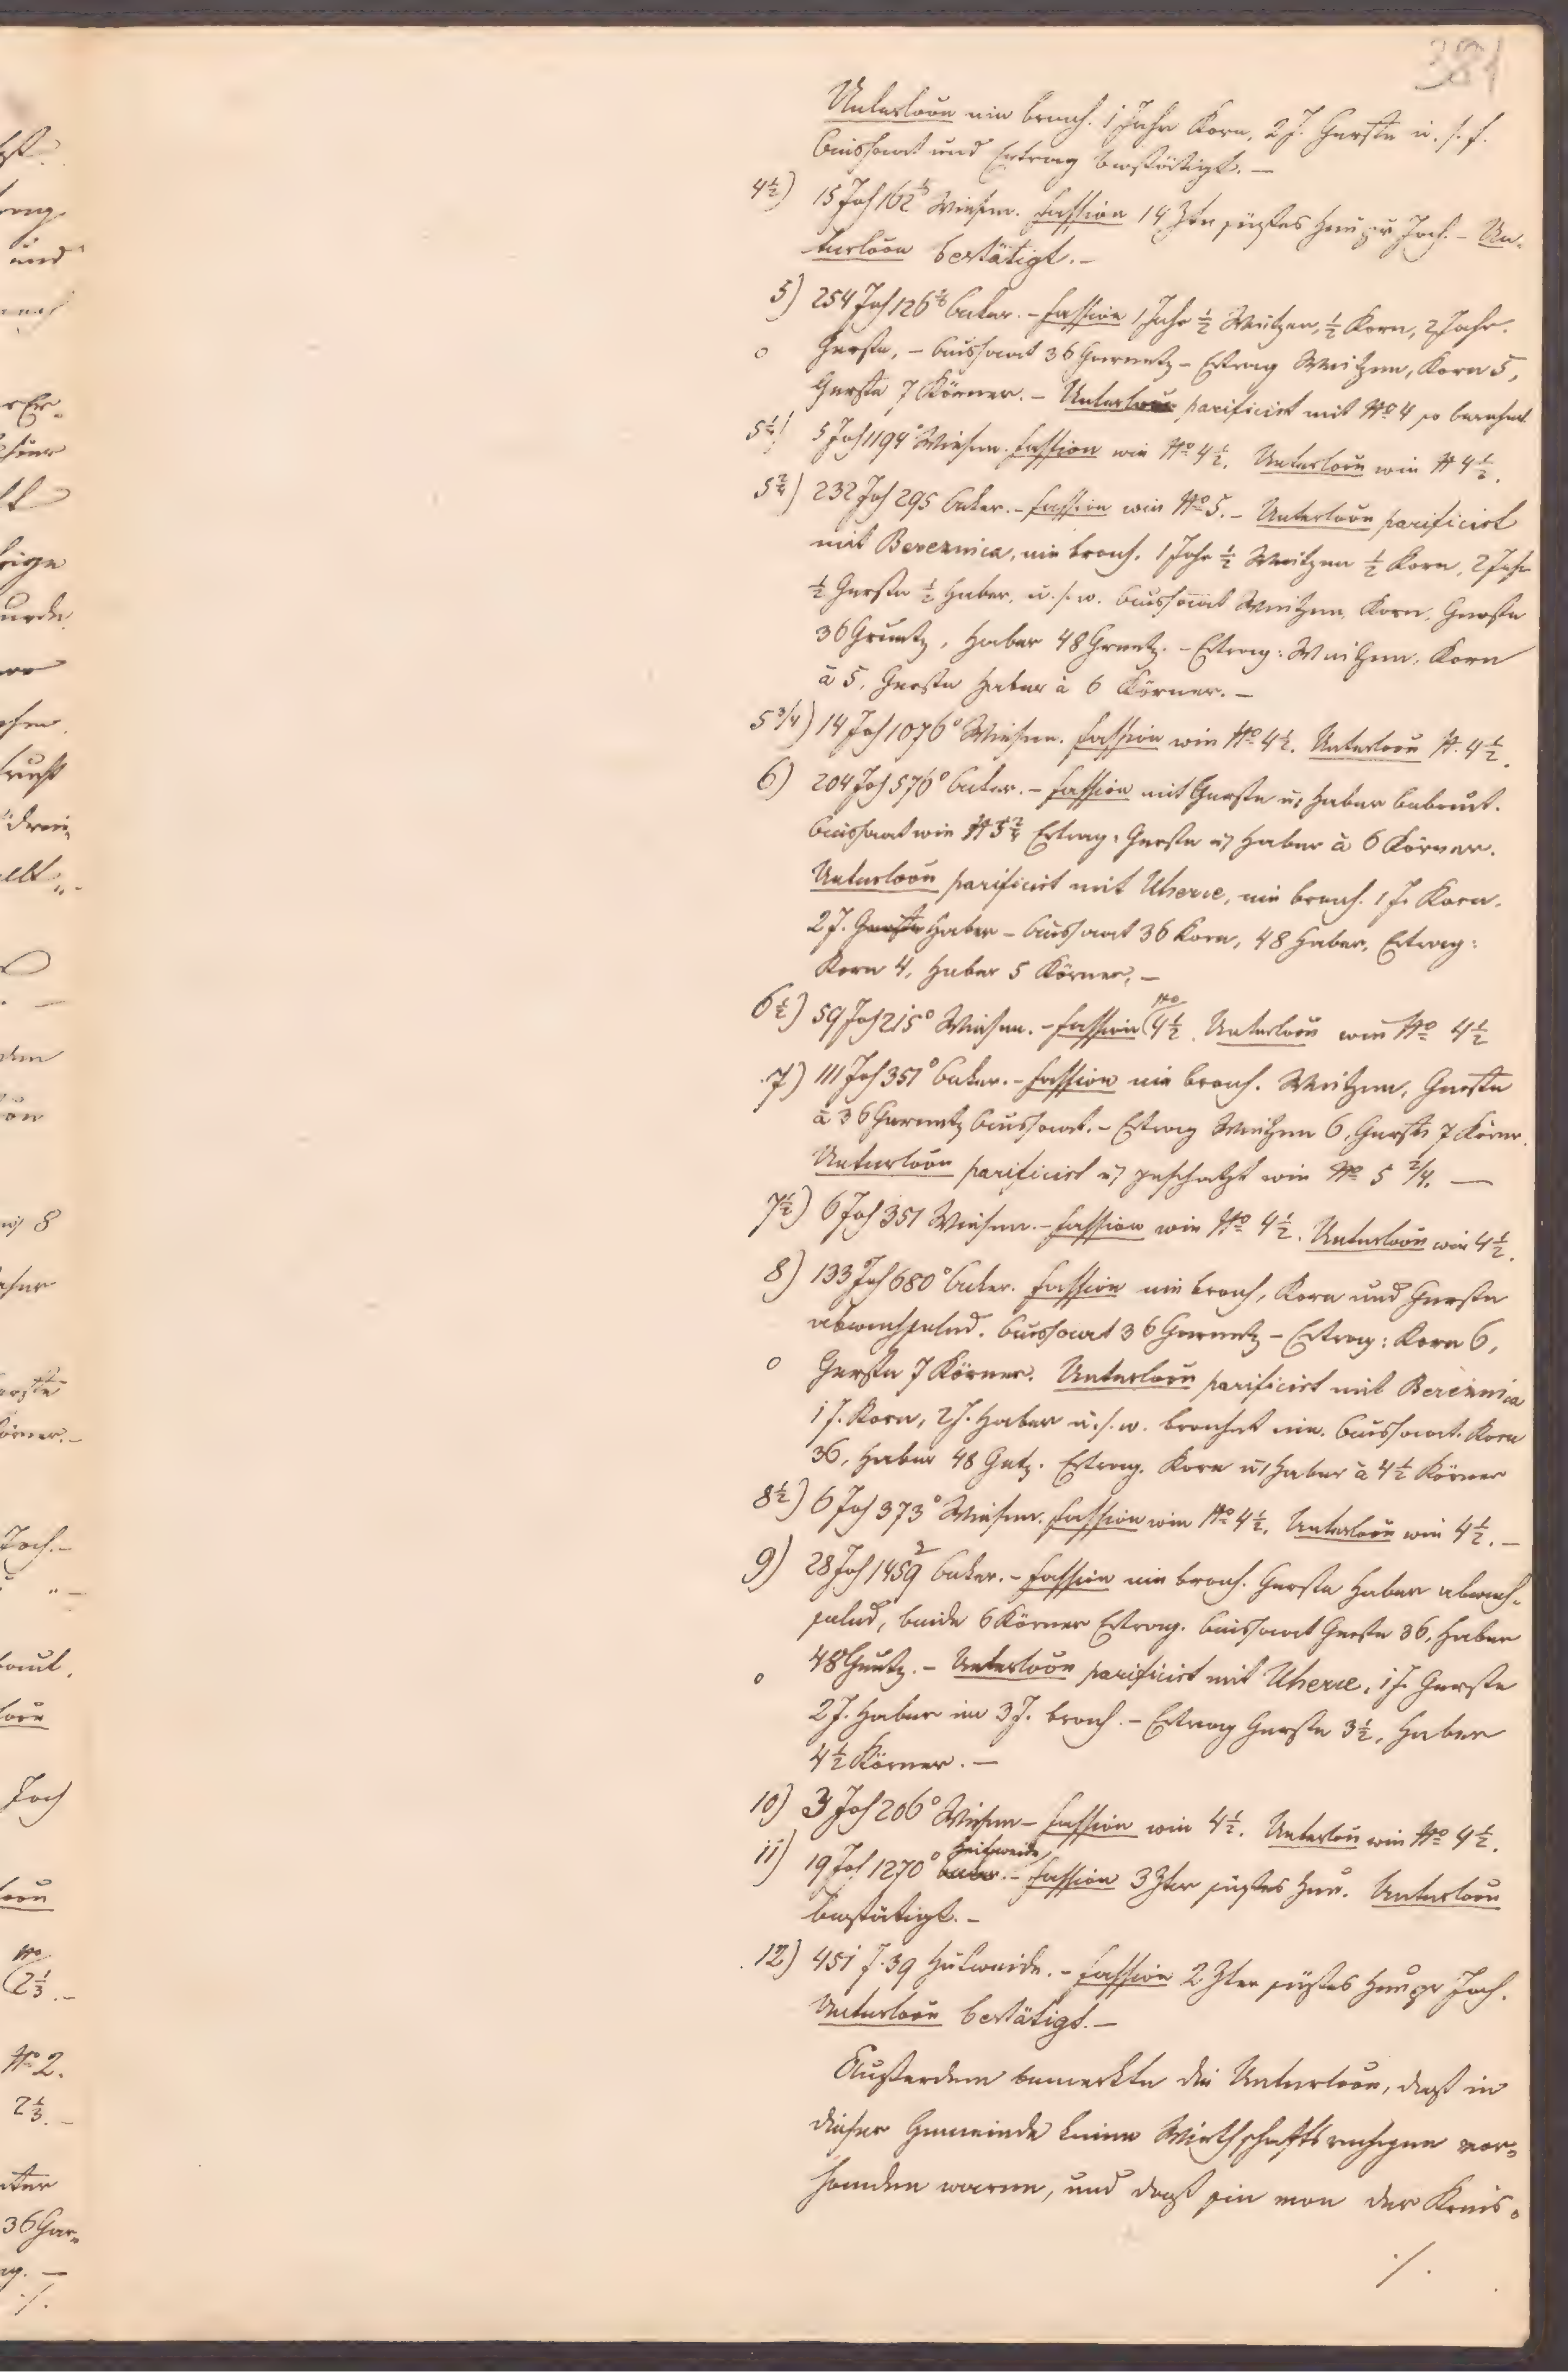 381
Unterloou nie brach. 1 Jahr Korn, 2 J. Gerste u. s. f.
Aussaat und Ertrag bestätigt. —
4½) 15 Joch 162 Wiesen. Fassion 14 Ztr süßes Heu pr Joch. – Un-
terloou bestätigt. –
5) 254 Joch 126 Aecker. – Fassion 1 Jahr ½ Weitzen, ½ Korn, 2 Jahr.
o Gerste, – Aussaat 36 Garnetz – Ertrag Weitzen, Korn 5,
Gerste 7 Körner. – Unterloou parificirt mit No 4 so berechnet
5¼) 5 Joch 1194° Wiesen. Fassion wie No 4½. Unterloou wie N 4½.
5 2/4) 232 Joch 295 Aecker. – Fassion wie No 5. – Unterloou parificirt
mit Bereznica, nie brach. 1 Jahr ½ Weitzen ½ Korn, 2 Jahr
½ Gerste ½ Haber, u. s. w. Aussaat Weitzen, Korn, Gerste
36 Grnetz, Haber 48 Grnetz. – Ertrag: Weitzen, Korn
à 5, Gerste Haber à 6 Körner. –
5 3/4) 14 Joch 1076° Wiesen. Fassion wie No 4½. Unterloou N. 4½.
6) 204 Joch 576° Aecker. – Fassion mit Gerste u. Haber bebaut.
Aussaat wie N 5 2/4 Ertrag: Gerste u. Haber à 6 Körner.
Unterloou parificirt mit Uherce, nie brach. 1 J. Korn.
2 J. Gerste Haber – Aussaat 36 Korn, 48 Haber, Ertrag:
Korn 4, Haber 5 Körner. –
6½) 59 Joch 215° Wiesen. – Fassion No 4½. Unterloou wie No 4½
7) 111 Joch 351° Aecker. – Fassion nie brach. Weitzen, Gerste
à 36 Garnetz Aussaat. – Ertrag Weitzen 6, Gerste 7 Körner.
Unterloou parificirt u. geschätzt wie No 5 2/4. —
7½) 6 Joch 351 Wiesen. – Fassion wie No 4½. Unterloou wie 4½.
8) 133 Joch 680° Aecker. Fassion nie brach, Korn und Gerste
abwechselnd. Aussaat 36 Garnetz – Ertrag: Korn 6,
o Gerste 7 Körner. Unterloou parificirt mit Bereznica
1 J. Korn, 2 J. Haber u. s. w. brachet nie. Aussaat. Korn
36, Haber 48 Gntz. Ertrag. Korn u. Haber à 4½ Körner
8½) 6 Joch 373° Wiesen. Fassion wie No 4½. Unterloou wie 4½. –
9) 28 Joch 1459 Aecker. – Fassion nie brach. Gerste Haber abwech-
selnd, beide 6 Körner Ertrag. Aussaat Gerste 36, Haber
o 48 Grntz. – Unterloou parificirt mit Uherce, 1 J. Gerste
2 J. Haber im 3 J. brach. – Ertrag Gerste 3½, Haber
4½ Körner. —
10) 3 Joch 206° Wiesen – Fassion wie 4½. Unterlou wie No 4½.
11) 19 Joch 1270° Hutweide – Fassion 3 Ztr süßes Heu. Unterloou
bestätigt. –
12) 451 J. 39 Hutweide. – Fassion 2 Ztr süßes Heu pr Joch.
Unterloou bestätigt. —
Außerdem bemerkte die Unterloou, daß in
dieser Gemeinde keine Wirthschaftsrechgen vor-
handen waren, und daß sie von der Kreis-
./.